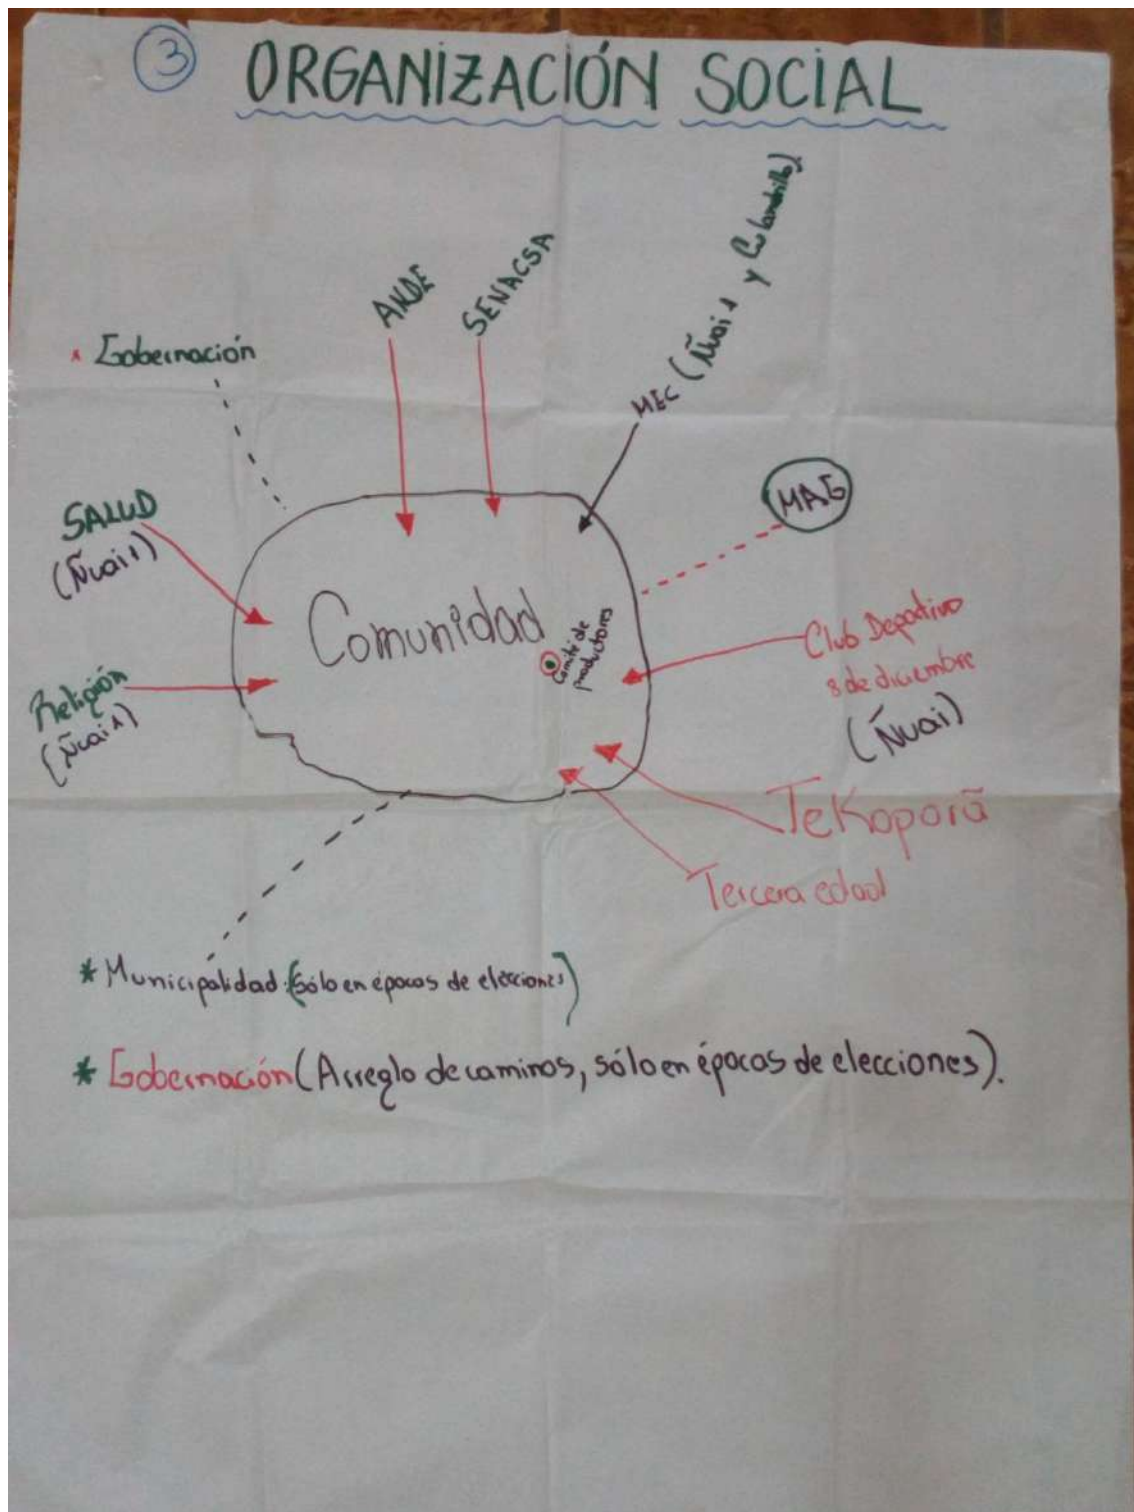 3 ORGANIZACIÓN SOCIAL
ANDE
SENACSA
MEC (Ñuai 1 y
* Gobernación
MAG
SALUD
(Ñuai 1)
Comunidad
Comité de
productores
Club Deportivo
8 de diciembre
(Ñuai)
Religión
(Ñuai 1)
TeKoporã
Tercera edad
* Municipalidad (sólo en épocas de elecciones)
* Gobernación (Arreglo de caminos, sólo en épocas de elecciones).